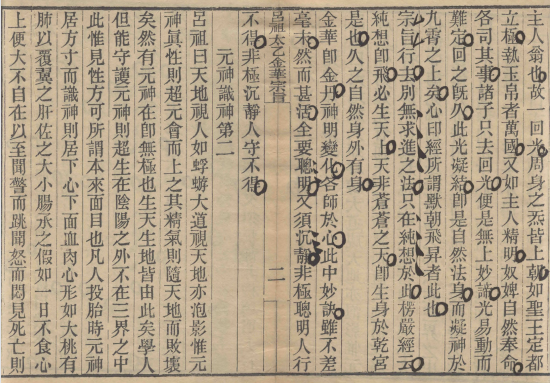 主人翁也故一回光周身之炁皆上朝如聖王定都
立極執玉帛者萬國又如主人精明奴婢自然奉命
各司其事諸子只去回光便是無上妙諦光易動而
難定回之旣久此光凝結卽是自然法身而凝神於
九霄之上矣心印經所謂默朝飛昇者此也
宗旨行去別無求進之法只在純想於此楞嚴經云
純想卽飛必生天上天非蒼蒼之天卽生身於乾宮
是也久之自然身外有身
金華卽金丹神明變化各師於心此中妙訣雖不差
毫末然而甚活全要聰明又須沉靜非極聰明人行
不得非極沉靜人守不得
呂祖太乙金華宗旨
二
元神識神第二
呂祖曰天地視人如蜉蝣大道視天地亦泡影惟元
神眞性則超元會而上之其精氣則隨天地而敗壞
矣然有元神在卽無極也生天生地皆由此矣學人
但能守護元神則超生在陰陽之外不在三界之中
此惟見性方可所謂本來面目也凡人投胎時元神
居方寸而識神則居下心下面血肉心形如大桃有
肺以覆翼之肝佐之大小腸承之假如一日不食心
上便大不自在以至聞驚而跳聞怒而悶見死亡則